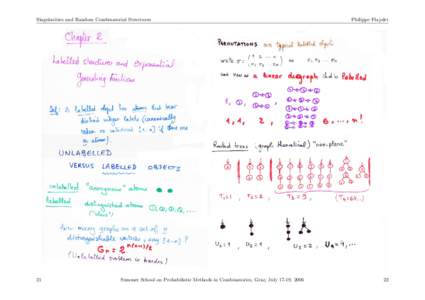 Singularities and Random Combinatorial Structures
Philippe Flajolet
Chapter 2
Labelled structures and Exponential
Generating Functions
Def: A labelled object has atoms that bear
distinct integer labels (canonically
taken as interval [1..n] if
atoms).
UNLABELLED
VERSUS LABELLED OBJECTS
Unlabelled "anonymous" atoms
Labelled distinguished atoms ①,②,③,...
("colours")
How many graphs on a set of n
distinguishable vertices, say [1..n]?
Gn = 2^{n(n-1)/2}
(Unlabelled problem is harder!)
PERMUTATIONS as typical labelled objects
write σ: (1 2 ... n / σ1 σ2 ... σn) as σ1, σ2 ... σn
and view as a linear digraph that is labelled
1, 1, 2, 6, ..., n!
Rooted trees (graph theoretical) "non-plane"
T1=1, T2=2, T3=9, (T4=64...)
U1=1, U2=1, U3=2, U4=4,...
21
Summer School on Probabilistic Methods in Combinatorics, Graz, July 17-19, 2006
22